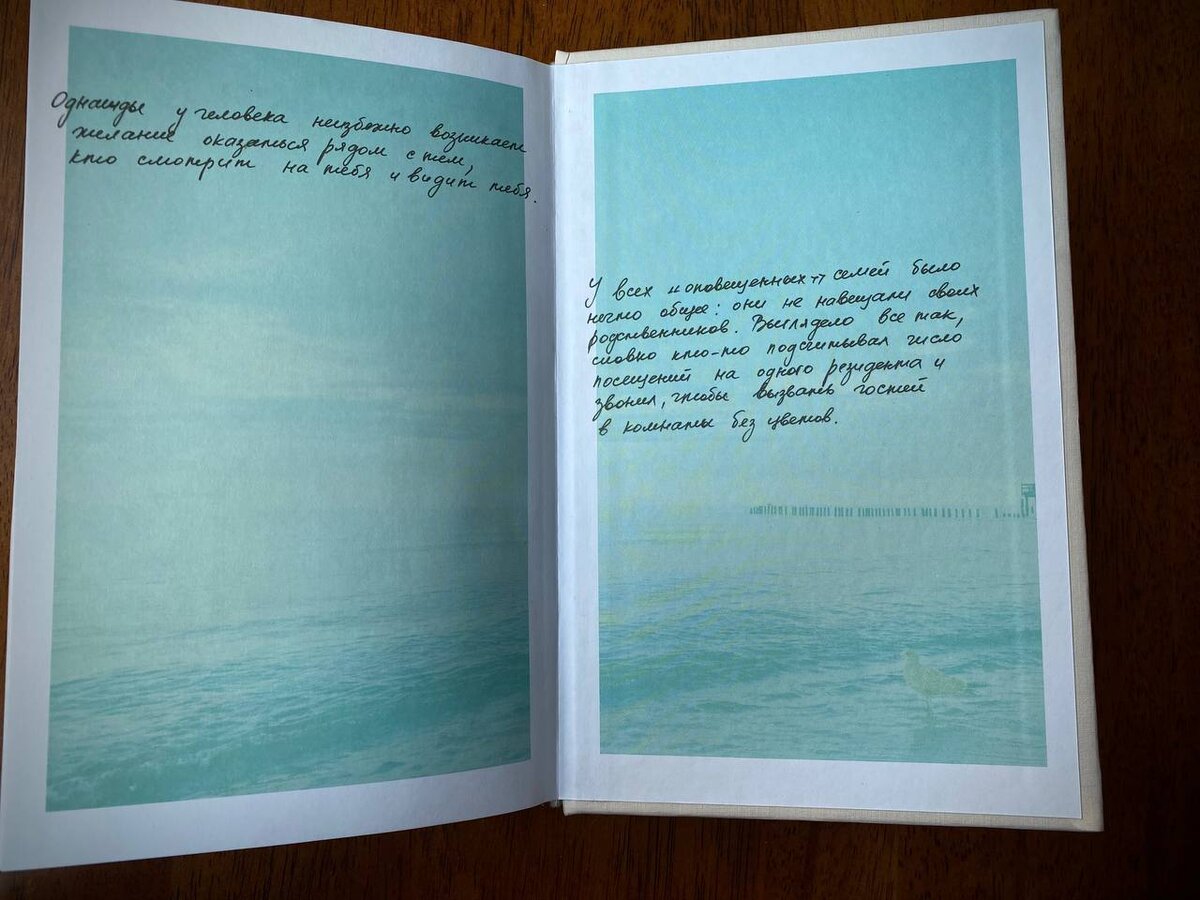 Однажды у человека неизбежно возникает
желание оказаться рядом с тем,
кто смотрит на тебя и видит тебя.
У всех «оповещенных» семей было
нечто общее: они не навещали своих
родственников. Выглядело все так,
словно кто-то подсчитывал число
посещений на одного резидента и
звонил, чтобы вызвать гостей
в комнаты без цветов.